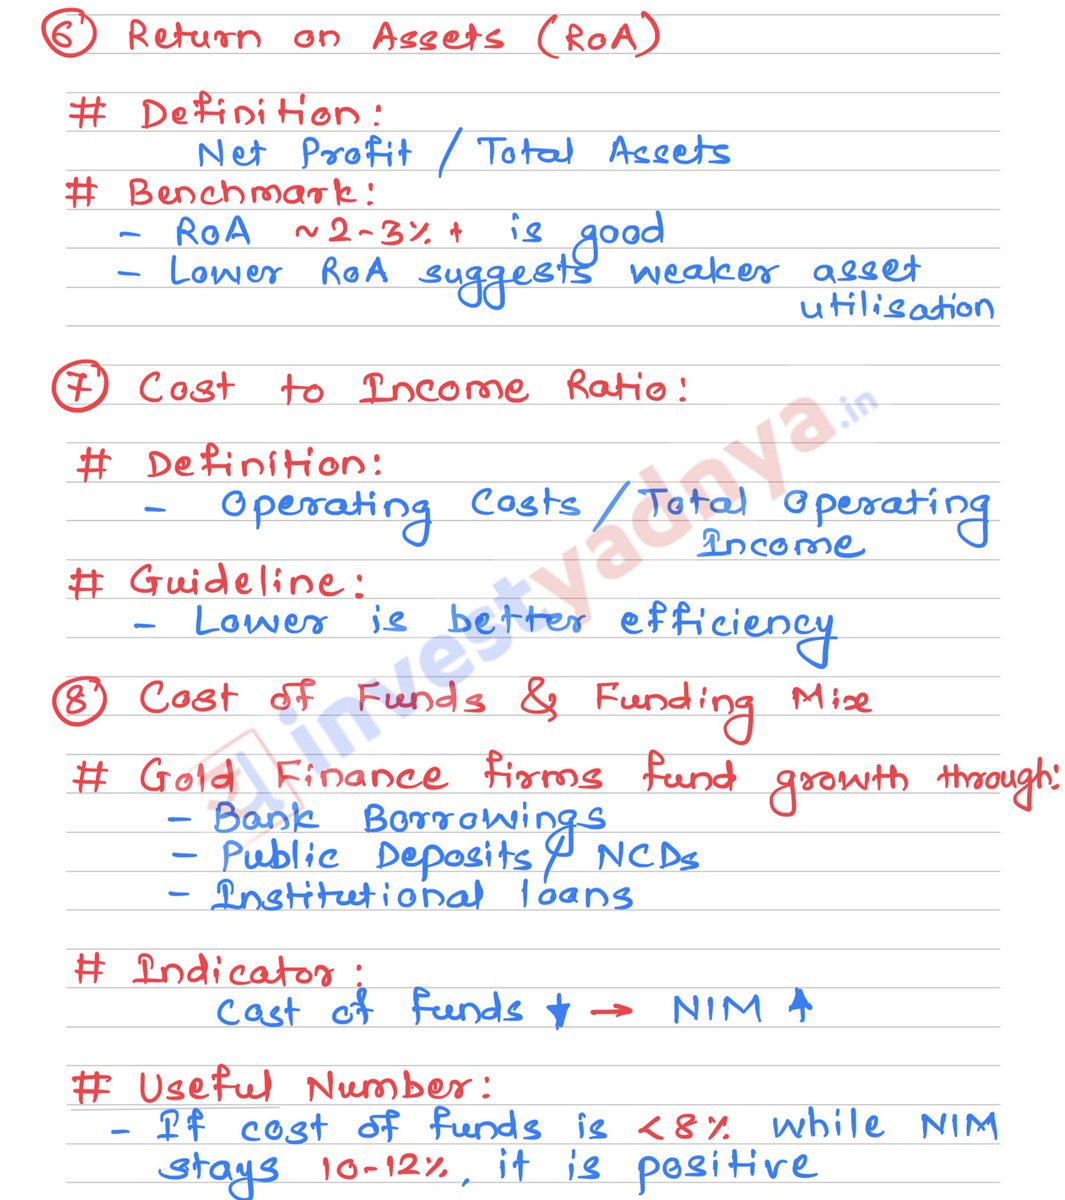 6 Return on Assets (RoA)
# Definition:
Net Profit / Total Assets
# Benchmark:
- RoA ~2-3%+ is good
- Lower RoA suggests weaker asset
utilisation
7 Cost to Income Ratio:
# Definition:
- Operating Costs / Total Operating
Income
# Guideline:
- Lower is better efficiency
8 Cost of Funds & Funding Mix
# Gold Finance firms fund growth through:
- Bank Borrowings
- Public Deposits / NCDs
- Institutional loans
# Indicator:
Cost of funds ↓ → NIM ↑
# Useful Number:
- If cost of funds is <8% while NIM
stays 10-12%, it is positive
investyadnya.in